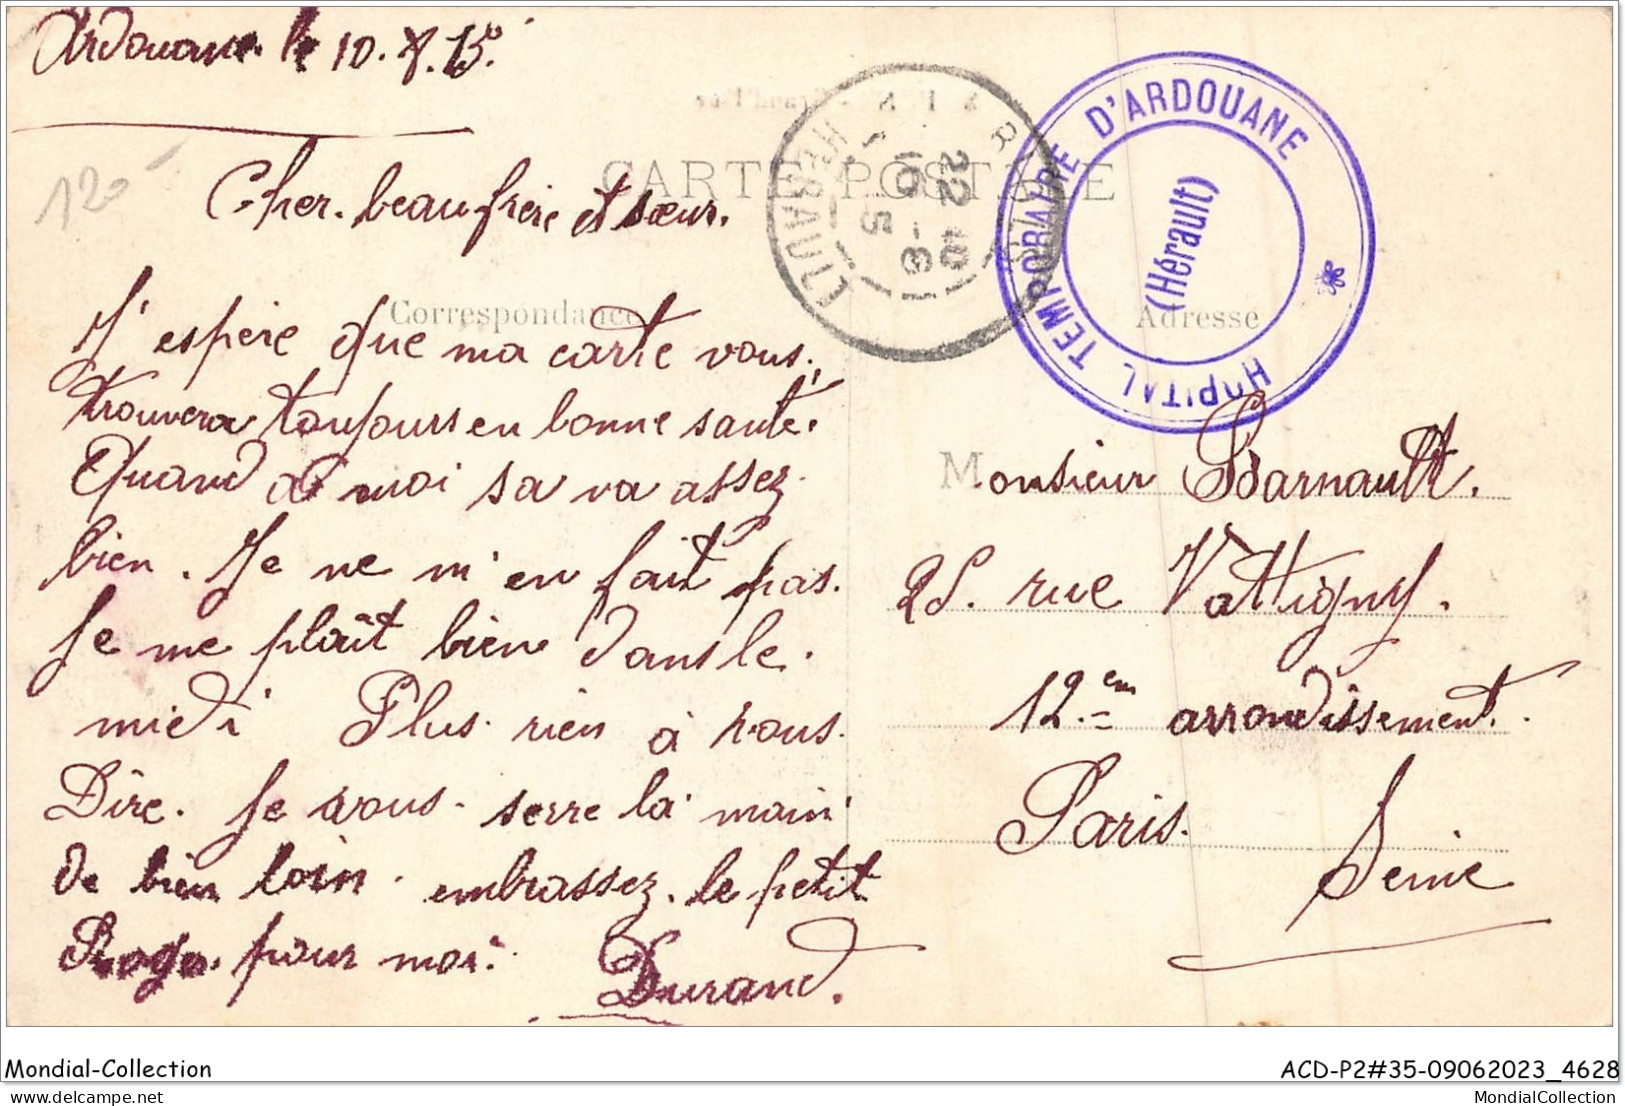 Ardouane le 10.8.15
120
CARTE POSTALE
HÔPITAL TEMPORAIRE D'ARDOUANE
(Hérault)
22 40
10 - 8
15
HÉRAULT
Cher. beau frère et sœur.
Correspondance
Adresse
J'espère que ma carte vous.
trouvera toujours en bonne santé.
Quand à moi sa va assez.
bien. Je ne m'en fait pas.
Je me plaît bien dans le.
midi Plus rien à vous.
Dire. Je vous serre la main
de bien loin. embrassez. le petit
pour moi.
Durand.
Monsieur Barnault.
25. rue Vattigny.
12.em arrondissement.
Paris.
Seine
Mondial-Collection
ACD-P2#35-09062023_4628
Copyright 2023
MondialCollection